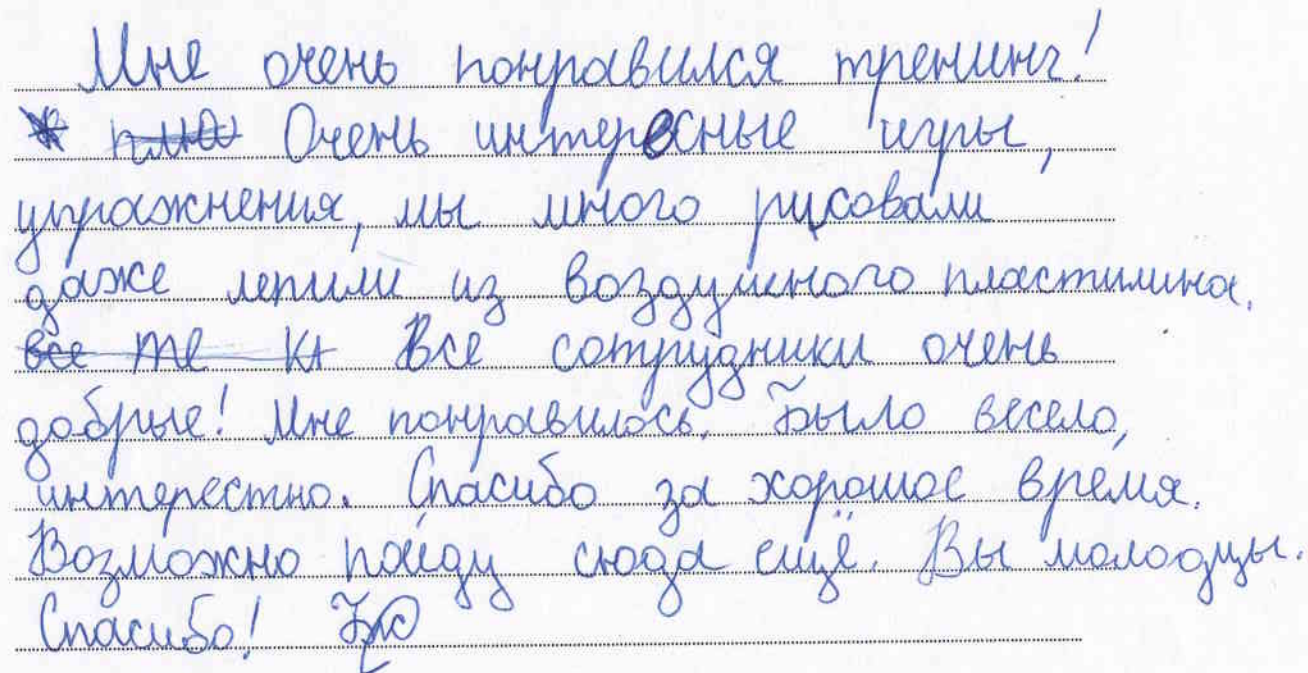 Мне очень понравился тренинг!
Очень интересные игры,
упражнения, мы много рисовали
даже лепили из воздушного пластилина.
все те кт Все сотрудники очень
добрые! Мне понравилось. Было весело,
интерестно. Спасибо за хорошое время.
Возможно поеду сюда ещё. Вы молодцы.
Спасибо!